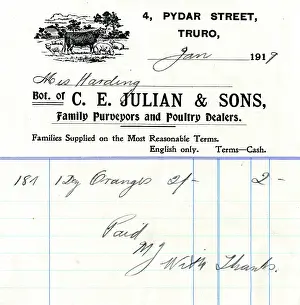 4, PYDAR STREET,
TRURO,
Jan 1919
Mis Harding
Bot. of C. E. JULIAN & SONS,
Family Purveyors and Poultry Dealers.
Families Supplied on the Most Reasonable Terms.
English only. Terms—Cash.
1 Dz Oranges 2/- 2 -
Paid
MJ
With Thanks.